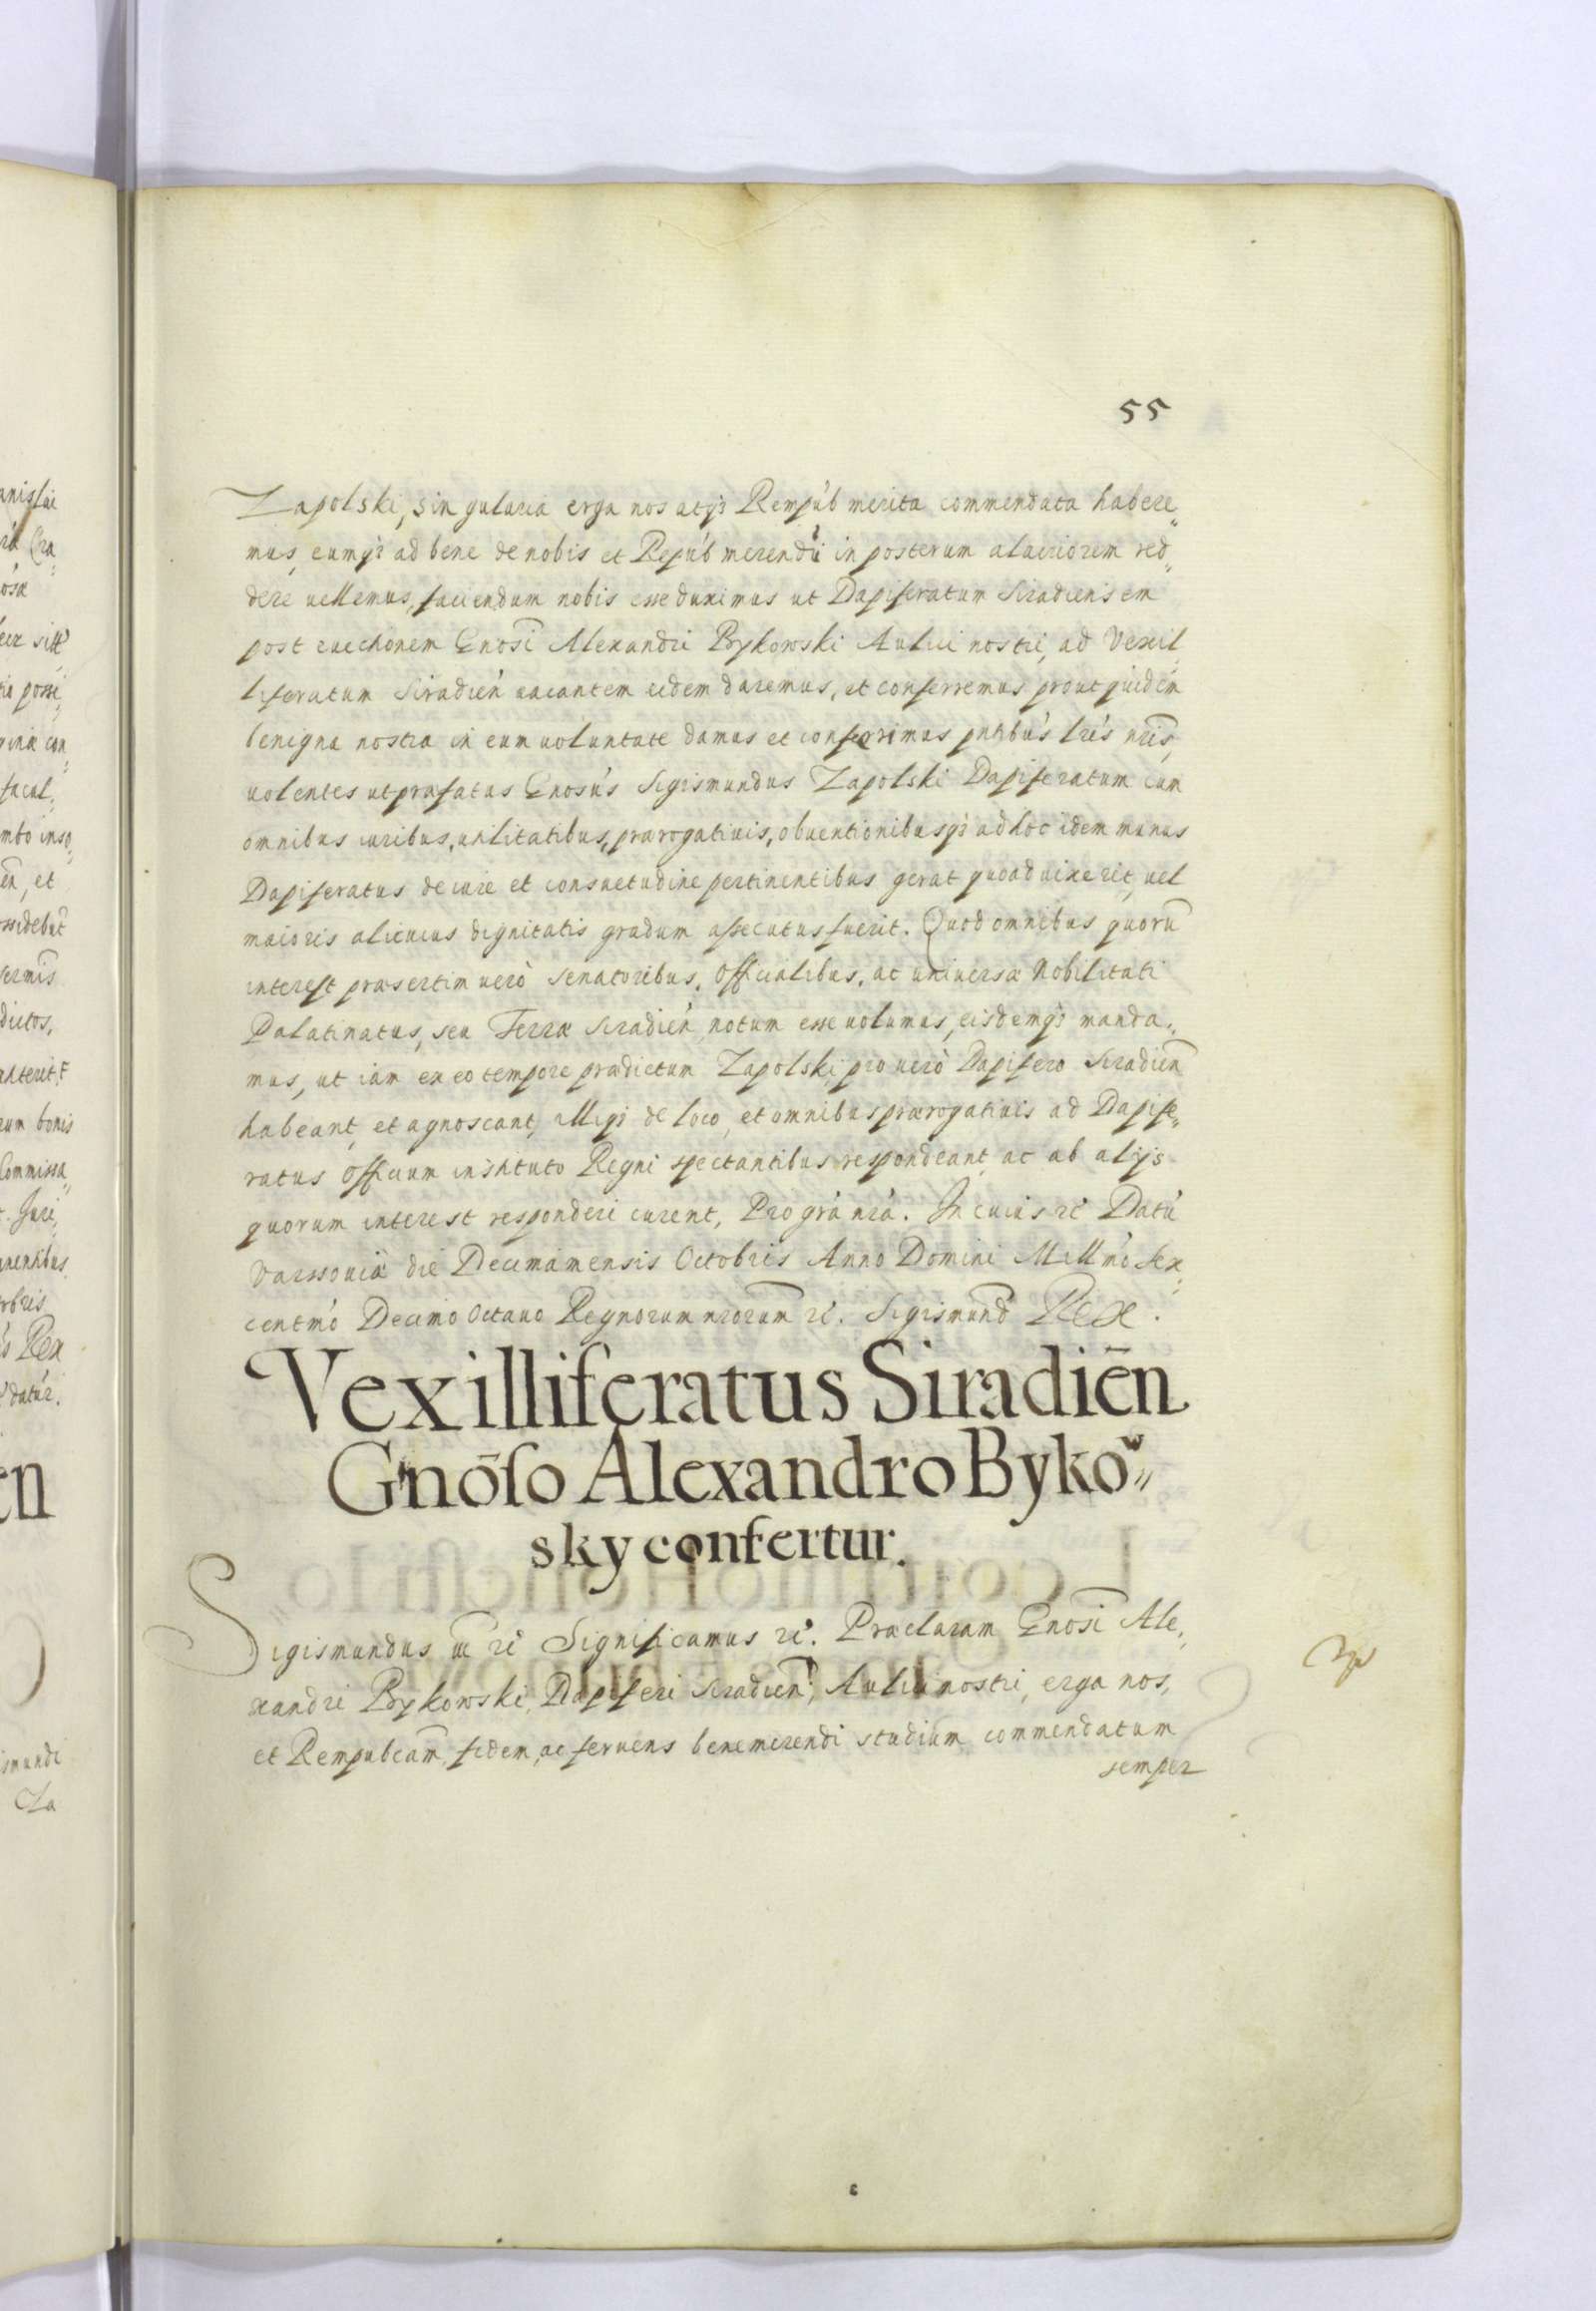 55
Zapolski, singularia erga nos atq₃ Rempúb merita commendata habere„
mus, eumq₃ ad bene de nobis et Repúb merendū in posterum alacriorem red„
dere uellemus, faciendum nobis esse duximus ut Dapiferatum Siradiensem
post euectionem Gnosi Alexandri Bykowski Aulici nostri, ad Vexil„
liferatum Siradień uacantem eidem daremus, et conferremus prout quidem
benigna nostra in eum uoluntate damus et conferimus pntibús lrís nrīs,
uolentes ut præfatus Gnosús Sigismundus Zapolski Dapiferatum cum
omnibus iuribus, utilitatibus, prærogatiuis, obuentionibusq₃ ad hoc idem munus
Dapiferatus de iure et consuetudine pertinentibus gerat quoad uixerit, uel
maioris alicuius dignitatis gradum assecutus fuerit. Quod omnibus quorū
interest præsertim uerò Senatoribus, Officialibus, ac uniuersæ Nobilitati
Palatinatus, seu Terræ Siradień, notum esse uolumus, eisdemq₃ manda„
mus, ut iam ex eo tempore prædictum Zapolski pro uerò Dapifero Siradień
habeant, et agnoscant, illiq₃ de loco, et omnibus prærogatiuis ad Dapife„
ratus Officium instituto Regni spectantibus respondeant, ac ab alijs
quorum interest responderi curent, Pro grá nrá. In cuius rei Datú
Varssouiæ die Decima mensis Octobris Anno Domini Millmó Sex„
centmó Decimo Octauo Regnorum nrorum rc. Sigismund Rex.
Vexilliferatus Siradiēn
Gnōso Alexandro Bykow„
sky confertur.
Sigismundus III rc Significamus rc. Præclaram Gnosi Ale„
xandri Bykowski, Dapiferi Siradień, Aulici nostri, erga nos,
et Rempubcam, fidem, ac feruens benemerendi studium commendatum
semper